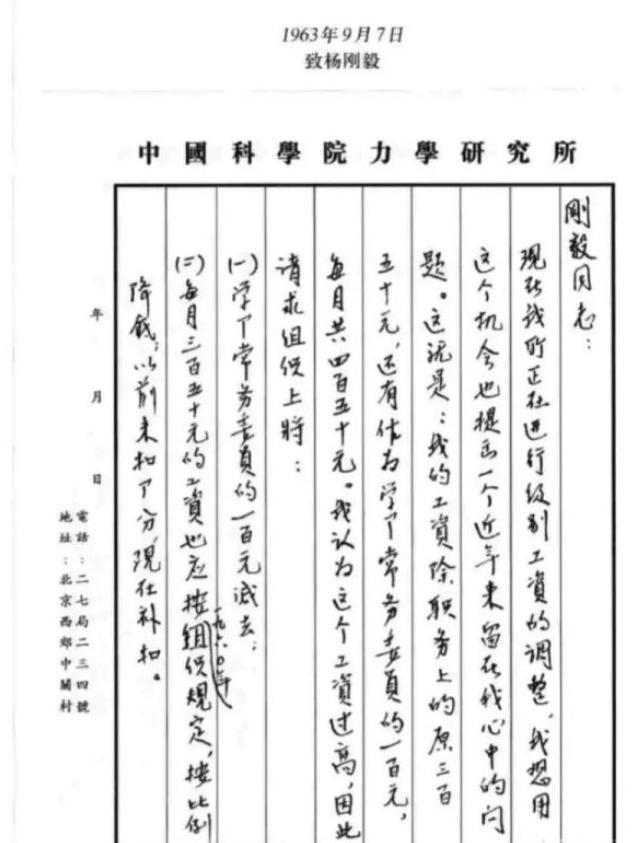 1963年9月7日
致杨刚毅
中國科學院力學研究所
剛毅同志：
现在我所正在进行级别工資的调整，我想用
这个机会也提出一个近年来留在我心中的问
题。这就是：我的工資除职务上的原三百
五十元，还有作为学下常务委員的一百元，
每月共四百五十元。我认为这个工資过高，因此
请求组织上將：
(一)学下常务委員的一百元减去；
(二)每月三百五十元的工資也应按组织一九六〇年规定，按比例
降低；以前未扣下分，現在补扣。
年 月 日
電話：二七局二三四號
地址：北京西郊中關村